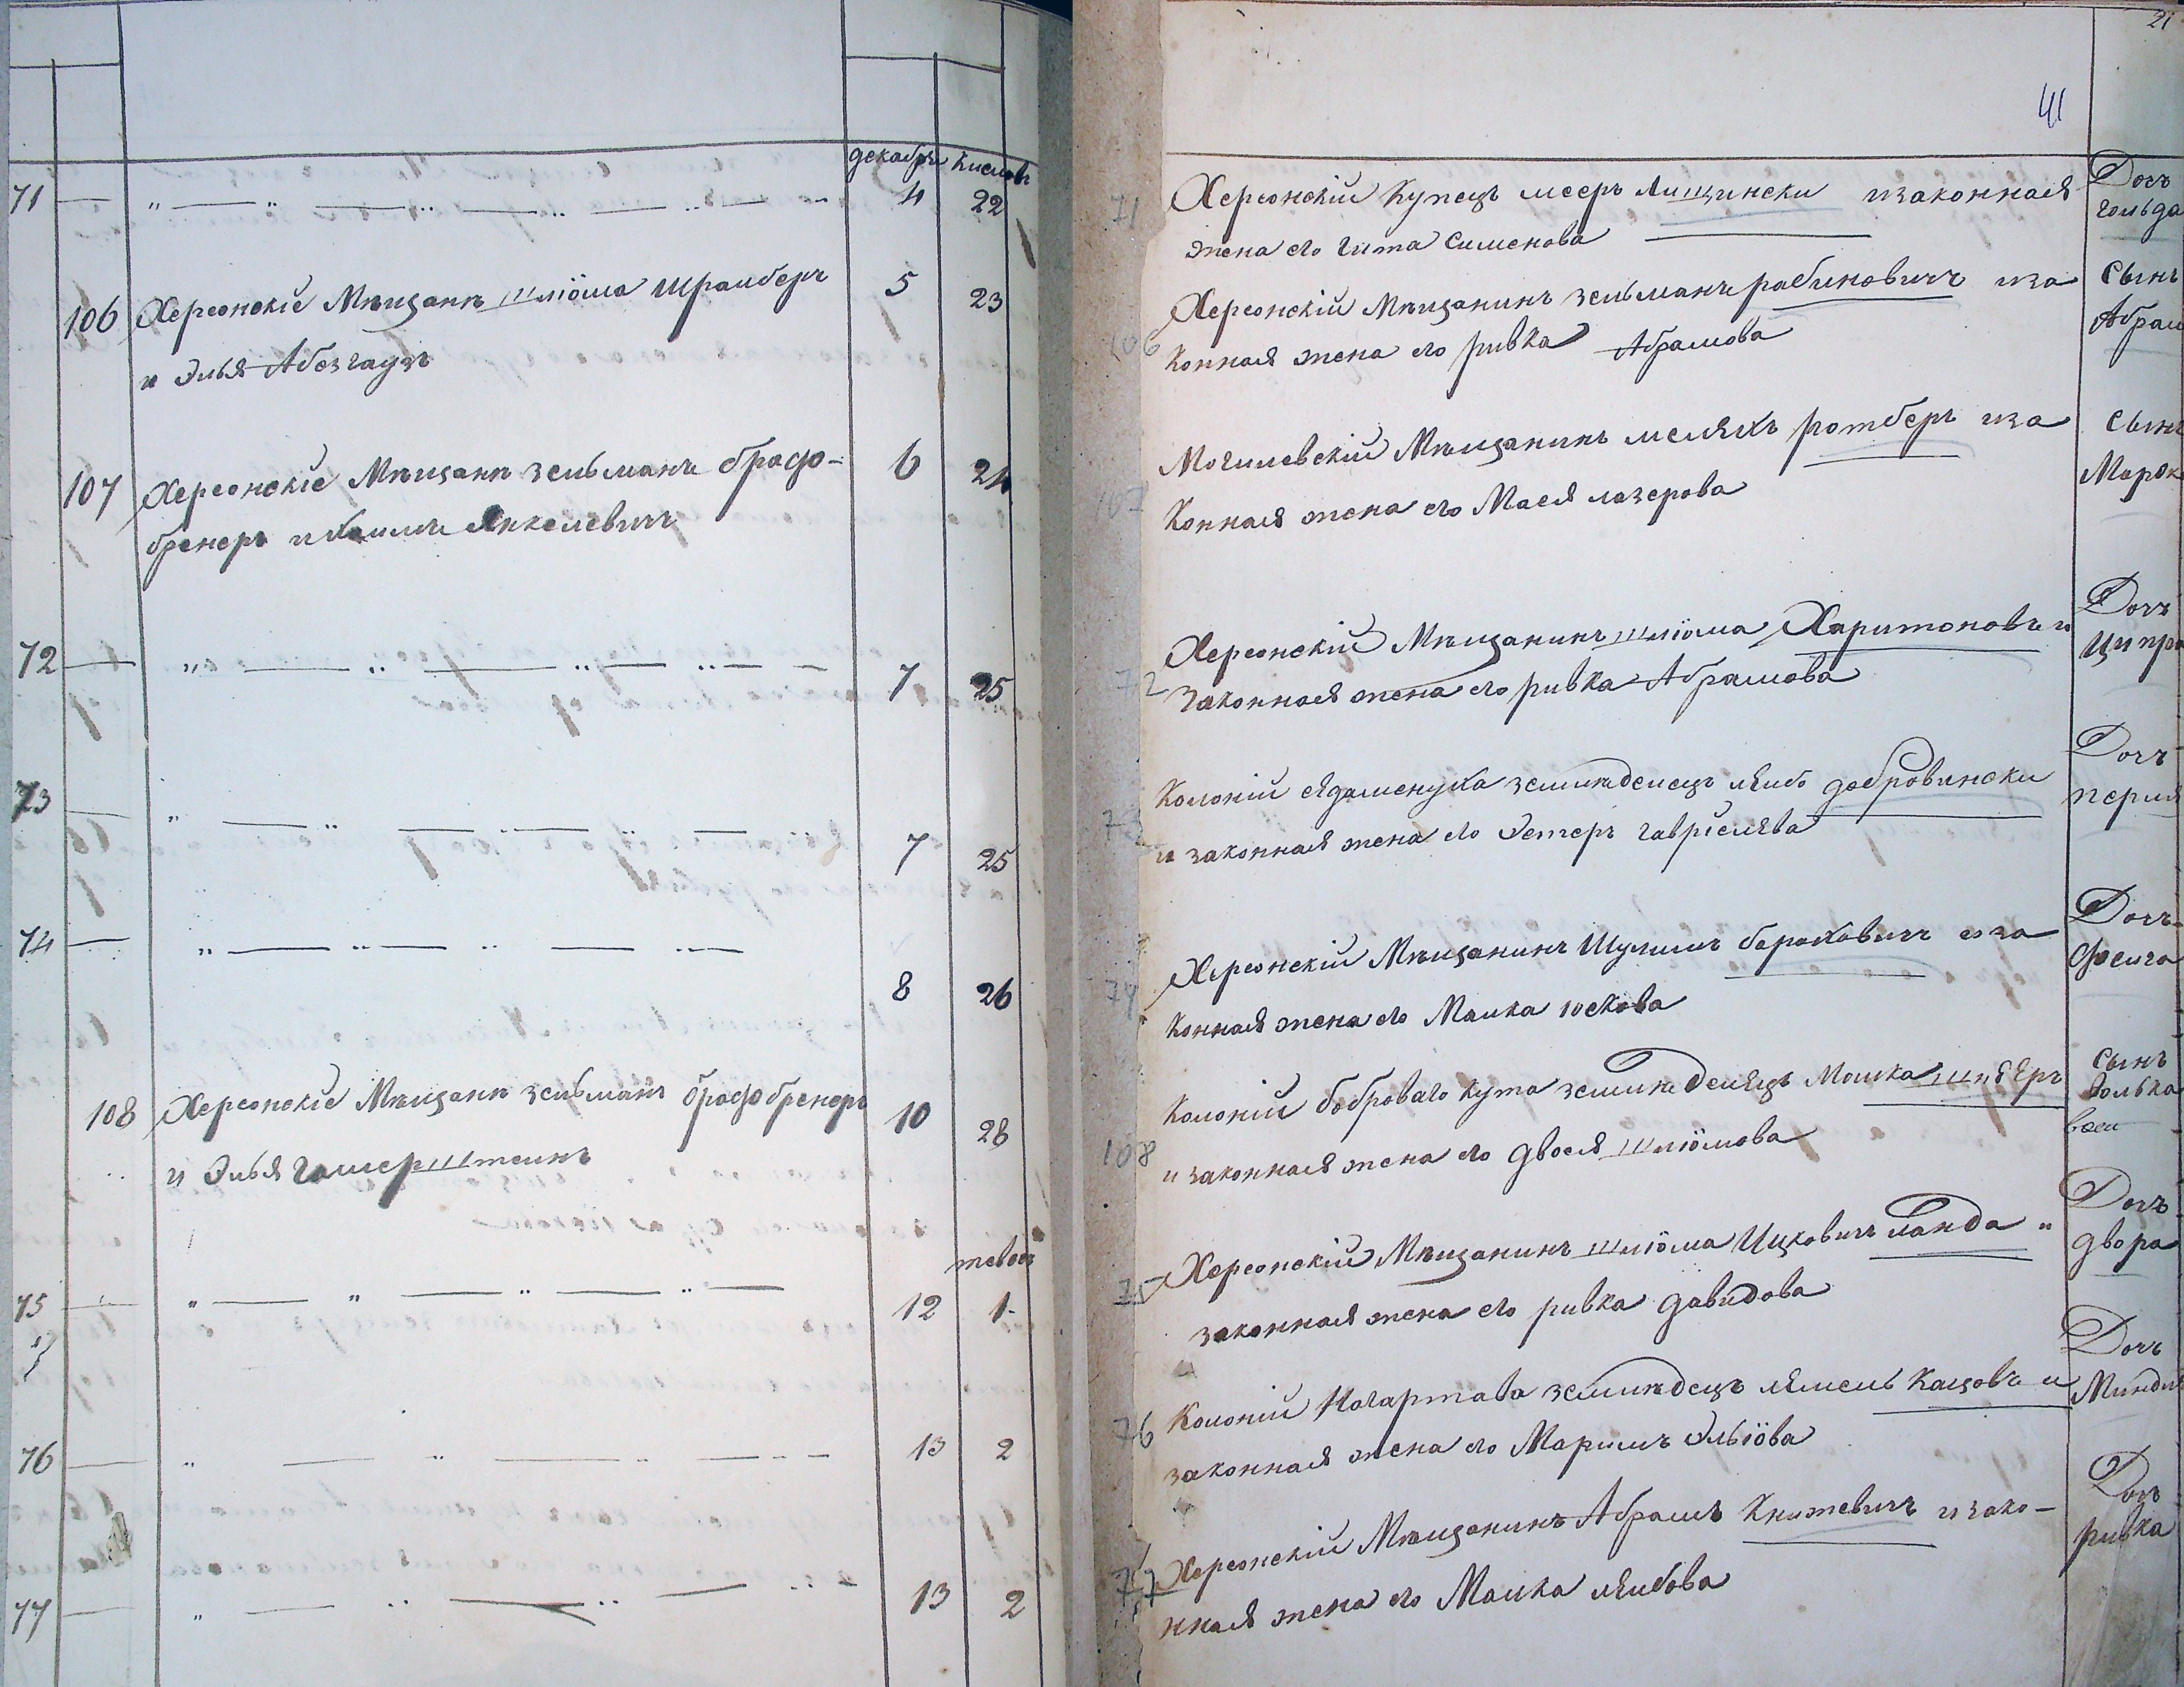 декабрь кислов
71 — " — " — " — " — " — 4 22
106 Херсонскіе Мѣщанѣ шліома Шрамберъ 5 23
и Элья Абезгаузъ
107 Херсонскіе Мѣщанѣ зельманъ брафо- 6 24
бренеръ и Хаимъ Янкелевичъ
72 — " — " — " — " — 7 25
73 — " — " — " — " — 7 25
74 — " — " — " — " — 8 26
108 Херсонскіе Мѣщанѣ зельманъ брафобренеръ 10 28
и Элья гамерштеинъ
тевет
75 — " — " — " — " — 12 1
76 — " — " — " — " — 13 2
77 — " — " — " — " — 13 2
21
41
71 Херсонскій Купецъ мееръ лищински изаконная Дочь
жена его гита Сименова гольда
106 Херсонскій Мѣщанинъ зельманъ рабиновичъ иза Сынъ
конная жена его ривка Абрамова Абрам
107 Могилевскій Мѣщанинъ мелехъ ротберъ иза Сынъ
Конная жена его Мася лазерова Марок
72 Херсонскій Мѣщанинъ шліома Харитоновъ и Дочъ
Законная жена его ривка Абрамова Ципра
73 Колоніи ядаменука землѣделецъ леибъ добровински Дочъ
и законная жена его Эстеръ гавріелева перля
74 Херсонскій Мѣщанинъ Шулимъ бароховичъ иза Дочъ
Конная жена его Малка юскова Феига
108 Колоніи боброваго кута землѣделецъ Мошка Сынъ
и законная жена его двося шліомова волька
75 Херсонскій Мѣщанинъ шліома Ицковичъ ланда " Дочъ
законная жена его ривка давидова двора
76 Колоніи Нагартава землѣдецъ лемель Кацовъ и Дочъ
законная жена его Маримъ Эльіова Миндля
77 Херсонскій Мѣщанинъ Абрамъ Княжевичъ изако- Дочъ
нная жена его Малка леибова ривка